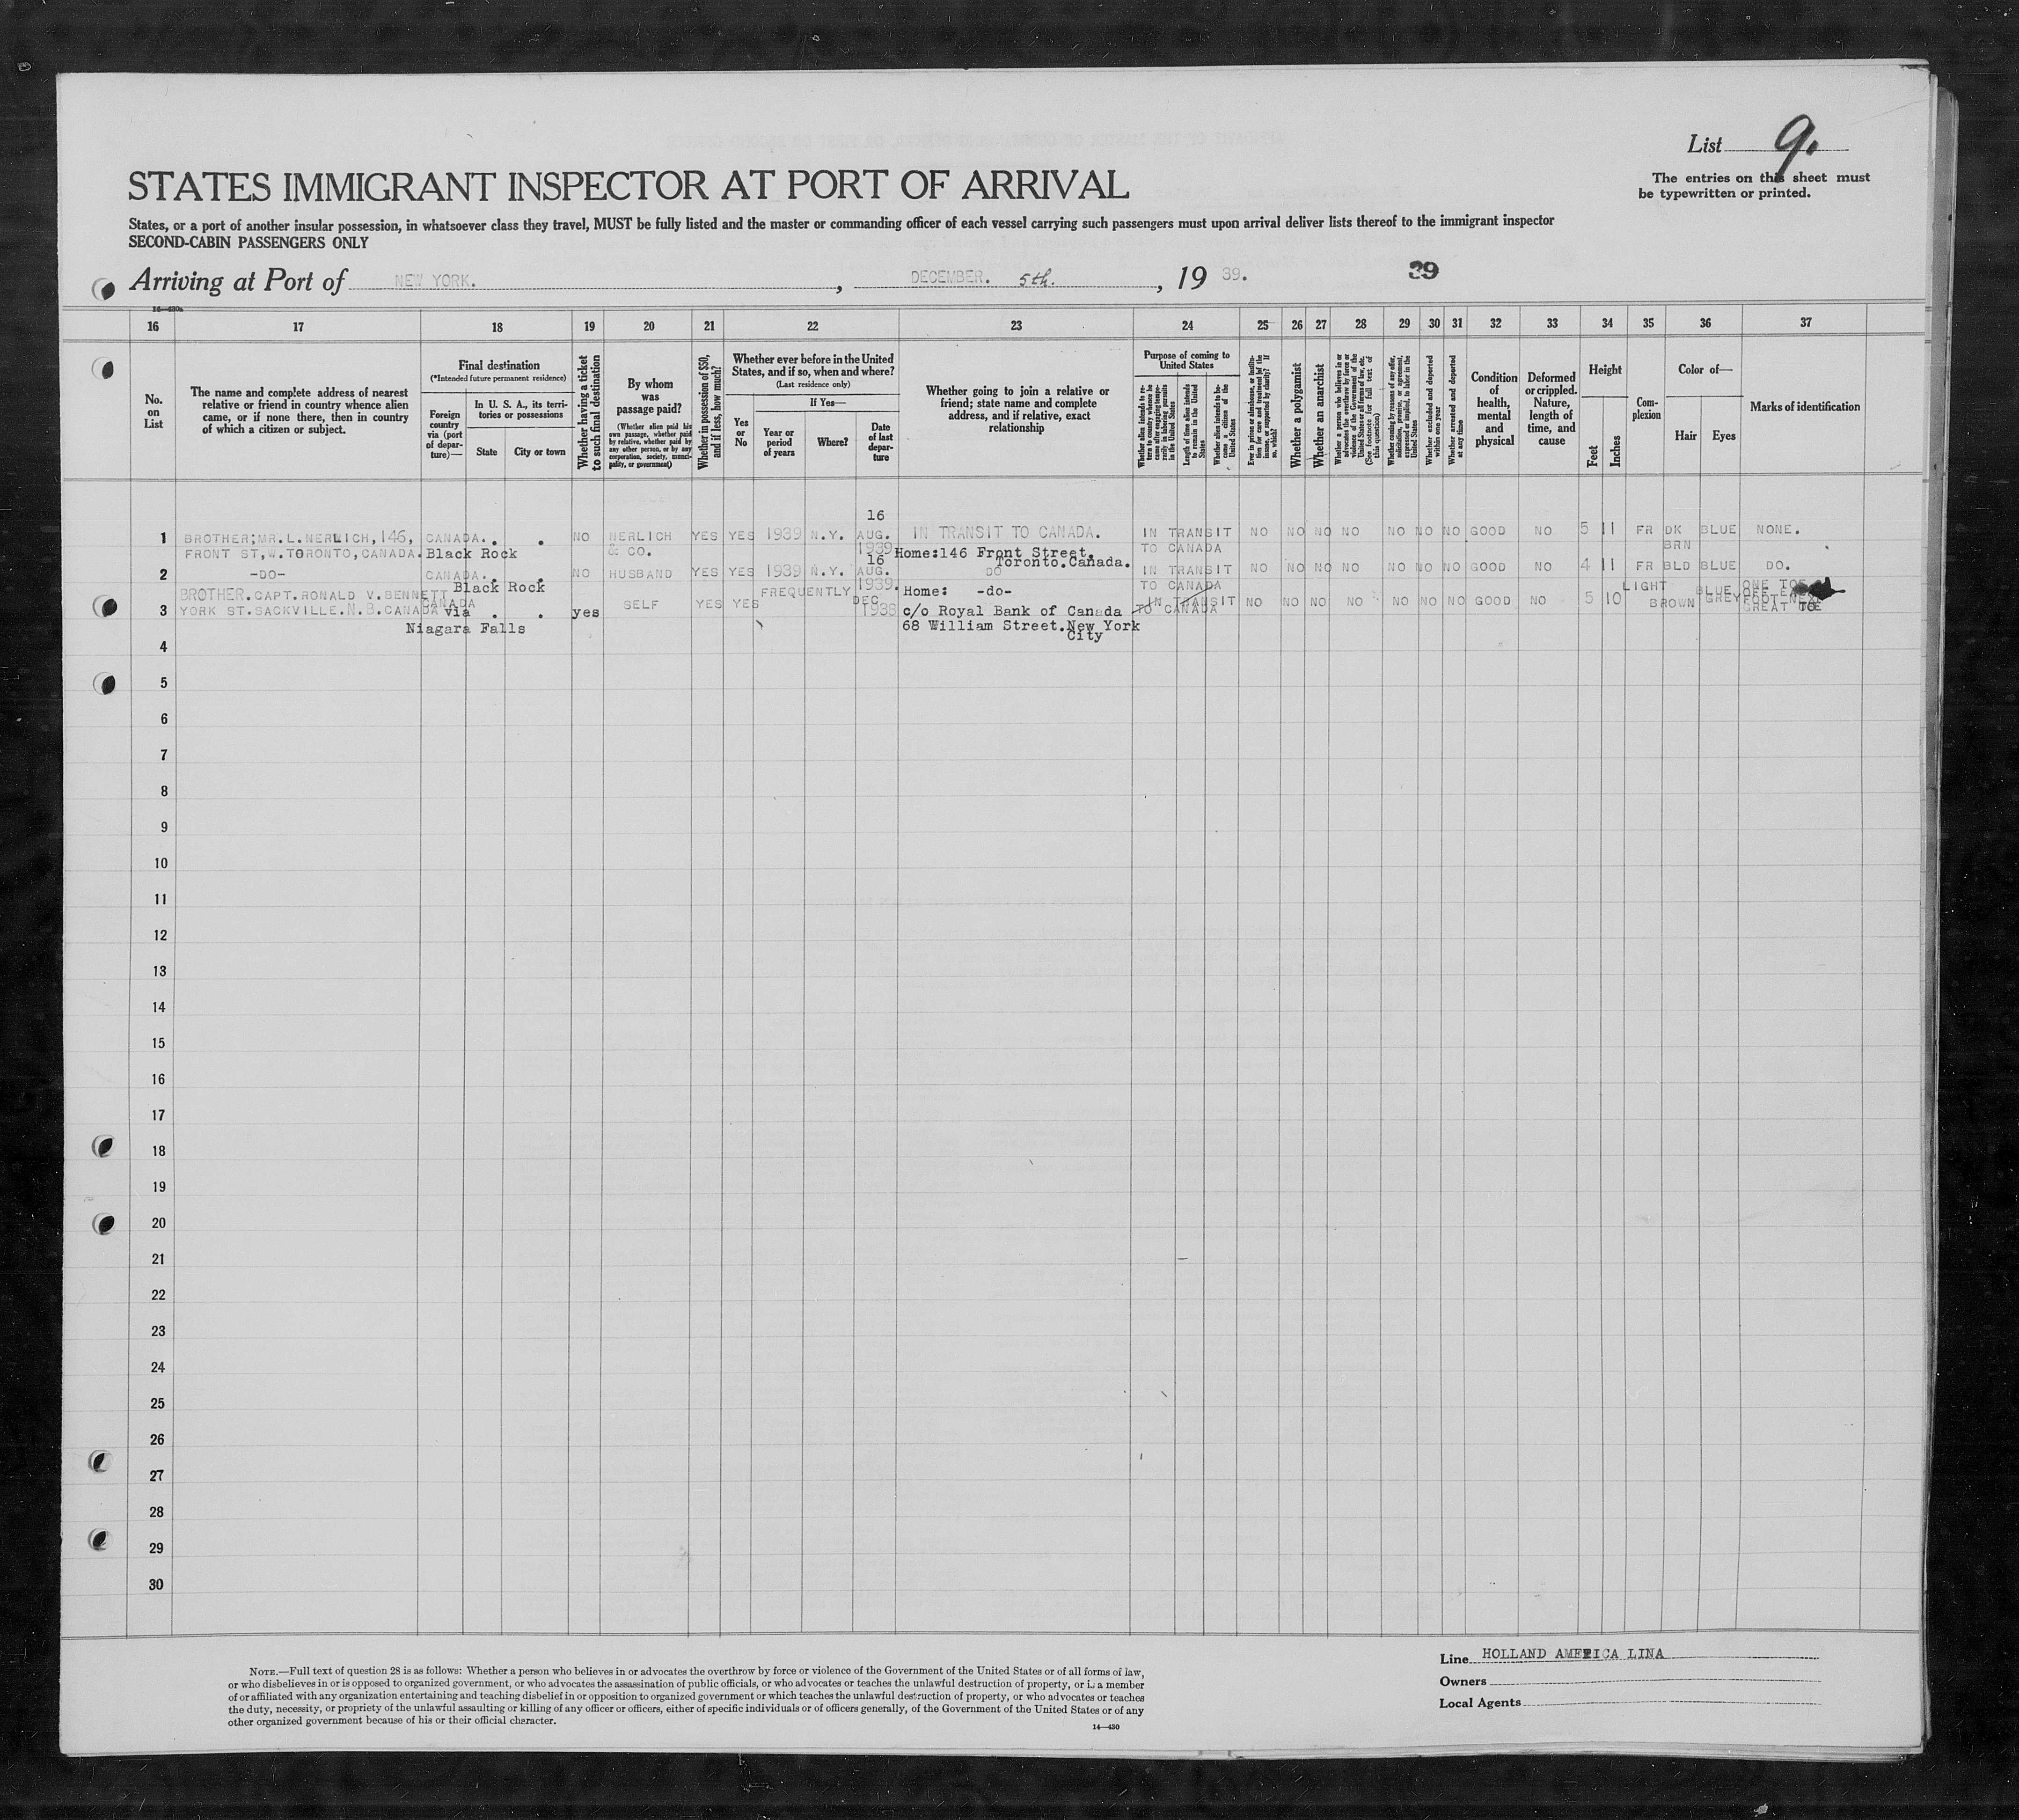 List 9.
The entries on this sheet must
be typewritten or printed.
STATES IMMIGRANT INSPECTOR AT PORT OF ARRIVAL
States, or a port of another insular possession, in whatsoever class they travel, MUST be fully listed and the master or commanding officer of each vessel carrying such passengers must upon arrival deliver lists thereof to the immigrant inspector
SECOND-CABIN PASSENGERS ONLY
Arriving at Port of NEW YORK. , DECEMBER. 5th. , 19 39. 39
14—430a
16 17 18 19 20 21 22 23 24 25 26 27 28 29 30 31 32 33 34 35 36 37
No.
on
List
The name and complete address of nearest
relative or friend in country whence alien
came, or if none there, then in country
of which a citizen or subject.
Final destination
(*Intended future permanent residence)
Foreign
country
via (port
of depar-
ture)—
In U. S. A., its terri-
tories or possessions
State
City or town
Whether having a ticket
to such final destination
By whom
was
passage paid?
(Whether alien paid his
own passage, whether paid
by relative, whether paid by
any other person, or by any
corporation, society, munici-
pality, or government)
Whether in possession of $50,
and if less, how much?
Whether ever before in the United
States, and if so, when and where?
(Last residence only)
Yes
or
No
If Yes—
Year or
period
of years
Where?
Date
of last
depar-
ture
Whether going to join a relative or
friend; state name and complete
address, and if relative, exact
relationship
Purpose of coming to
United States
Whether alien intends to re-
turn to country whence he
came after engaging tempo-
rarily in laboring pursuits
in the United States
Length of time alien intends
to remain in the United
States
Whether alien intends to be-
come a citizen of the
United States
Ever in prison or almshouse, or institu-
tion for care and treatment of the
insane, or supported by charity? If
so, which?
Whether a polygamist
Whether an anarchist
Whether a person who believes in or
advocates the overthrow by force or
violence of the Government of the
United States or all forms of law, etc.
(See footnote for full text of
this question)
Whether coming by reason of any offer,
solicitation, promise, or agreement,
expressed or implied, to labor in the
United States
Whether excluded and deported
within one year
Whether arrested and deported
at any time
Condition
of
health,
mental
and
physical
Deformed
or crippled.
Nature,
length of
time, and
cause
Height
Feet
Inches
Com-
plexion
Color of—
Hair
Eyes
Marks of identification
16
1 BROTHER;MR.L.NERLICH,146, CANADA. . . NO NERLICH YES YES 1939 N.Y. AUG. IN TRANSIT TO CANADA. IN TRANSIT NO NO NO NO NO NO NO GOOD NO 5 11 FR DK BLUE NONE.
FRONT ST,W.TORONTO,CANADA. Black Rock & CO. 1939 Home:146 Front Street. TO CANADA BRN
16 Toronto.Canada.
2 -DO- CANADA. . . NO HUSBAND YES YES 1939 N.Y. AUG. DO IN TRANSIT NO NO NO NO NO NO NO GOOD NO 4 11 FR BLD BLUE DO.
Black Rock 1939. Home: -do- TO CANADA
BROTHER.CAPT.RONALD V.BENNETT CANADA FREQUENTLY DEC LIGHT BLUE ONE TOE
3 YORK ST.SACKVILLE.N.B.CANADA via . . yes SELF YES YES 1938 c/o Royal Bank of Canada IN TRANSIT TO CANADA NO NO NO NO NO NO NO GOOD NO 5 10 BROWN GREY FOOT NEXT GREAT TOE
Niagara Falls 68 William Street.New York
City
4
5
6
7
8
9
10
11
12
13
14
15
16
17
18
19
20
21
22
23
24
25
26
27
28
29
30
NOTE.—Full text of question 28 is as follows: Whether a person who believes in or advocates the overthrow by force or violence of the Government of the United States or of all forms of law,
or who disbelieves in or is opposed to organized government, or who advocates the assassination of public officials, or who advocates or teaches the unlawful destruction of property, or is a member
of or affiliated with any organization entertaining and teaching disbelief in or opposition to organized government or which teaches the unlawful destruction of property, or who advocates or teaches
the duty, necessity, or propriety of the unlawful assaulting or killing of any officer or officers, either of specific individuals or of officers generally, of the Government of the United States or of any
other organized government because of his or their official character.
14—430
Line HOLLAND AMERICA LINA
Owners
Local Agents